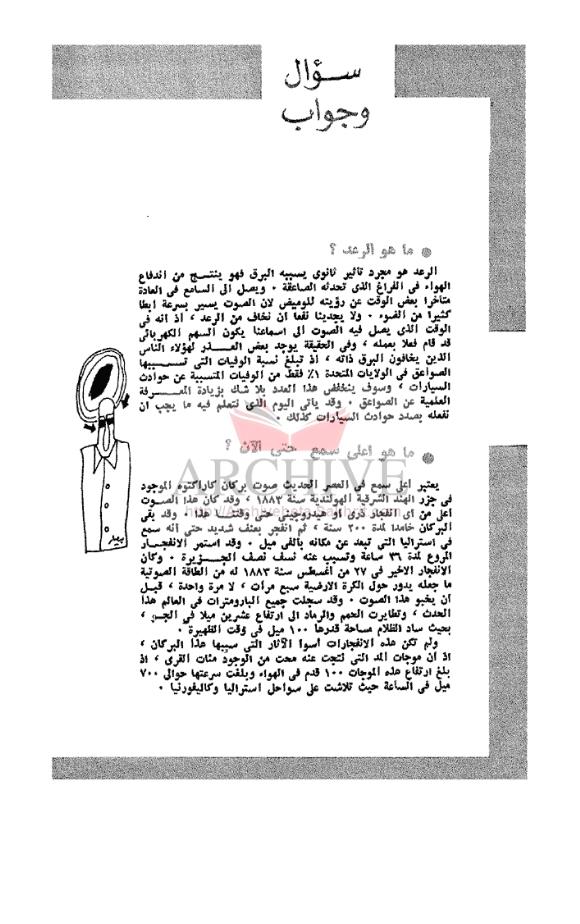 سؤال
وجواب
● ما هو الرعد ؟
الرعد هو مجرد تأثير ثانوى يسببه البرق فهو ينتسج من اندفاع
الهواء فى الفراغ الذى تحدثه الصاعقة ٠ ويصل الى السامع فى العادة
متأخرا بعض الوقت عن رؤيته للوميض لان الصوت يسير بسرعة ابطا
كثيرا من الضوء ٠ ولا يجدينا نفعا ان نخاف من الرعد ، اذ انه فى
الوقت الذى يصل فيه الصوت الى اسماعنا يكون السهم الكهربائى
قد قام فعلا بعمله ، وفى الحقيقة يوجد بعض العـــذر لهؤلاء الناس
الذين يخافون البرق ذاته ، اذ تبلغ نسبة الوفيات التى تســـببها
الصواعق فى الولايات المتحدة ١٪ فقط من الوفيات المتسببة عن حوادث
السيارات ، وسوف ينخفض هذا العدد بلا شك بزيادة المعـــرفة
العلمية عن الصواعق ٠ وقد ياتى اليوم الذى نتعلم فيه ما يجب ان
نفعله بصدد حوادث السيارات كذلك ٠
● ما هو اعلى سمع حتى الآن ؟
ARCHIVE
يعتبر اعلى سمع فى العصر الحديث صوت بركان كاراكتوه الموجود
فى جزر الهند الشرقية الهولندية سنة ١٨٨٣ ، وقد كان هذا الصـوت
اعلى من اى انفجار ذرى او هيدروجينى حتى وقتنا هذا ٠ وقد بقى
البركان خامدا لمدة ٢٠٠ سنة ، ثم انفجر بعنف شديد حتى انه سمع
فى استراليا التى تبعد عن مكانه بألفى ميل ٠ وقد استمر الانفجـــار
المروع لمدة ٣٦ ساعة وتسبب عنه نسف نصف الجـــزيرة ٠ وكان
الانفجار الاخير فى ٢٧ من أغسطس سنة ١٨٨٣ له من الطاقة الصوتية
ما جعله يدور حول الكرة الارضية سبع مرات ، لا مرة واحدة ، قبـل
ان يخبو هذا الصوت ٠ وقد سجلت جميع البارومترات فى العالم هذا
الحدث ، وتطايرت الحمم والرماد الى ارتفاع عشرين ميلا فى الجـو ،
بحيث ساد الظلام مساحة قدرها ١٠٠ ميل فى وقت الظهيرة ٠
ولم تكن هذه الانفجارات أسوا الآثار التى سببها هذا البركان ،
اذ ان موجات المد التى نتجت عنه محت من الوجود مئات القرى ، اذ
بلغ ارتفاع هذه الموجات ١٠٠ قدم فى الهواء وبلغت سرعتها حوالى ٧٠٠
ميل فى الساعة حيث تلاشت على سواحل استراليا وكاليفورنيا ٠